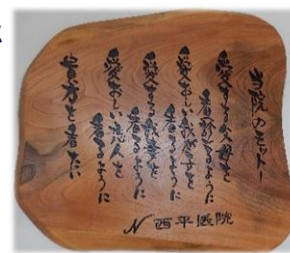 当院のモットー
愛する父母を
看病するように
愛おしい我が子を
看るように
愛する我妻を
看るように
愛おしい恋人を
看るように
貴方を看たい
西平医院